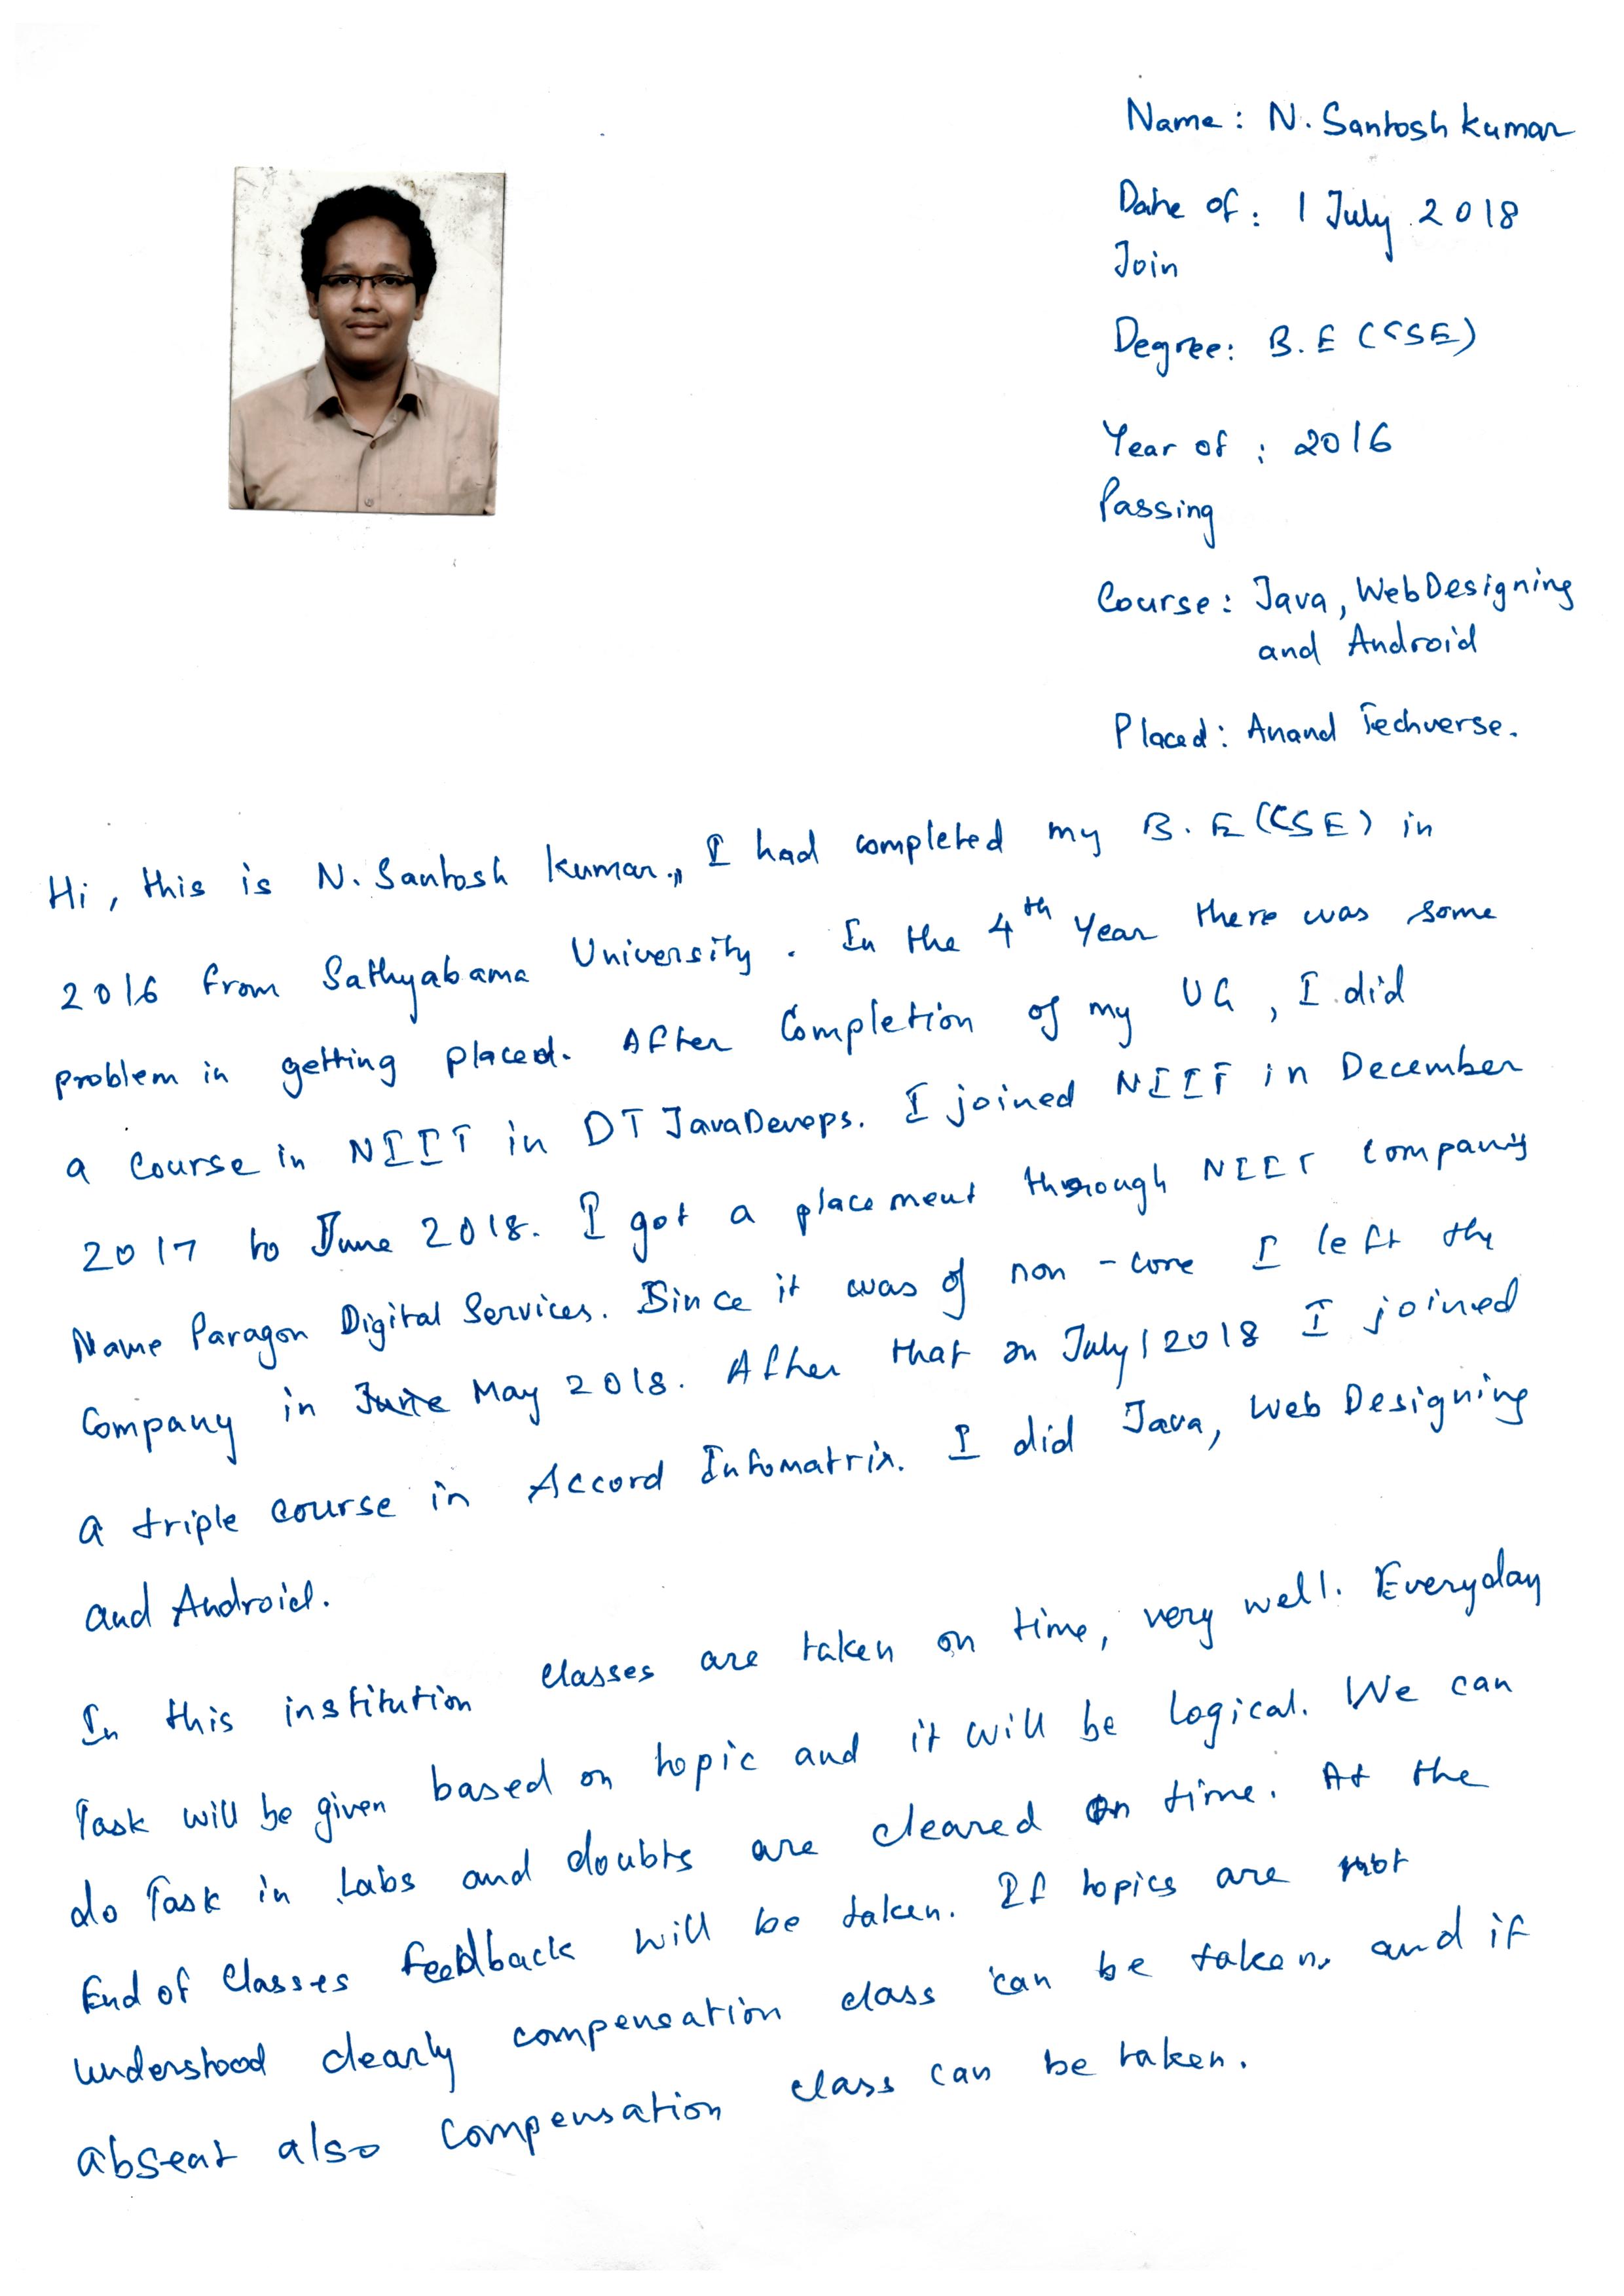 Name : N. Santosh kumar
Date of : 1 July 2018
Join
Degree : B.E (CSE)
Year of : 2016
Passing
Course : Java, WebDesigning
and Android
Placed : Anand Techverse.
Hi, this is N. Santosh kumar., I had completed my B.E (CSE) in
2016 from Sathyabama University. In the 4th Year there was some
problem in getting placed. After Completion of my UG, I did
a course in NIIT in DT JavaDevops. I joined NIIT in December
2017 to June 2018. I got a placement through NIIT Company
Name Paragon Digital Services. Since it was of non-core I left the
Company in May 2018. After that on July 1 2018 I joined
a triple course in Accord Infomatrix. I did Java, Web Designing
and Android.
In this institution classes are taken on time, very well. Everyday
Task will be given based on topic and it will be logical. We can
do Task in Labs and doubts are cleared on time. At the
End of classes feedback will be taken. If topics are not
understood clearly compensation class can be taken, and if
absent also compensation class can be taken.